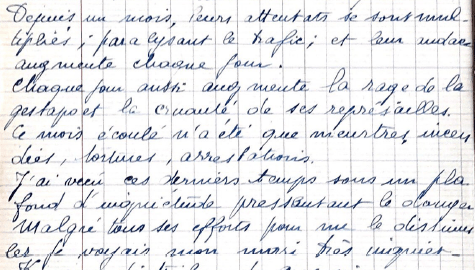 Depuis un mois, leurs attentats se sont mul
tipliés ; paralysant le trafic ; et leur audace
augmente chaque jour.
Chaque jour aussi augmente la rage de la
gestapo et la cruauté de ses représailles.
Ce mois écoulé n'a été que meurtres, incen
dies, tortures, arrestations.
J'ai vécu ces derniers temps sous un pla
fond d'inquiétude pressentant le danger
Malgré tous ses efforts pour me le dissimu
ler je voyais mon mari très inquiet -